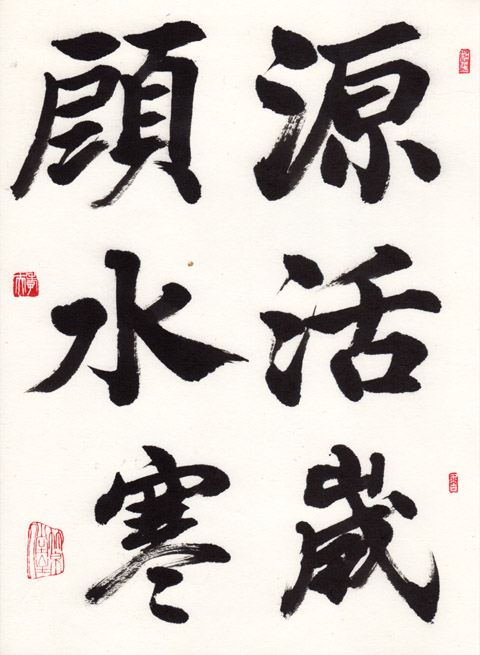 源活歲
顧水寒